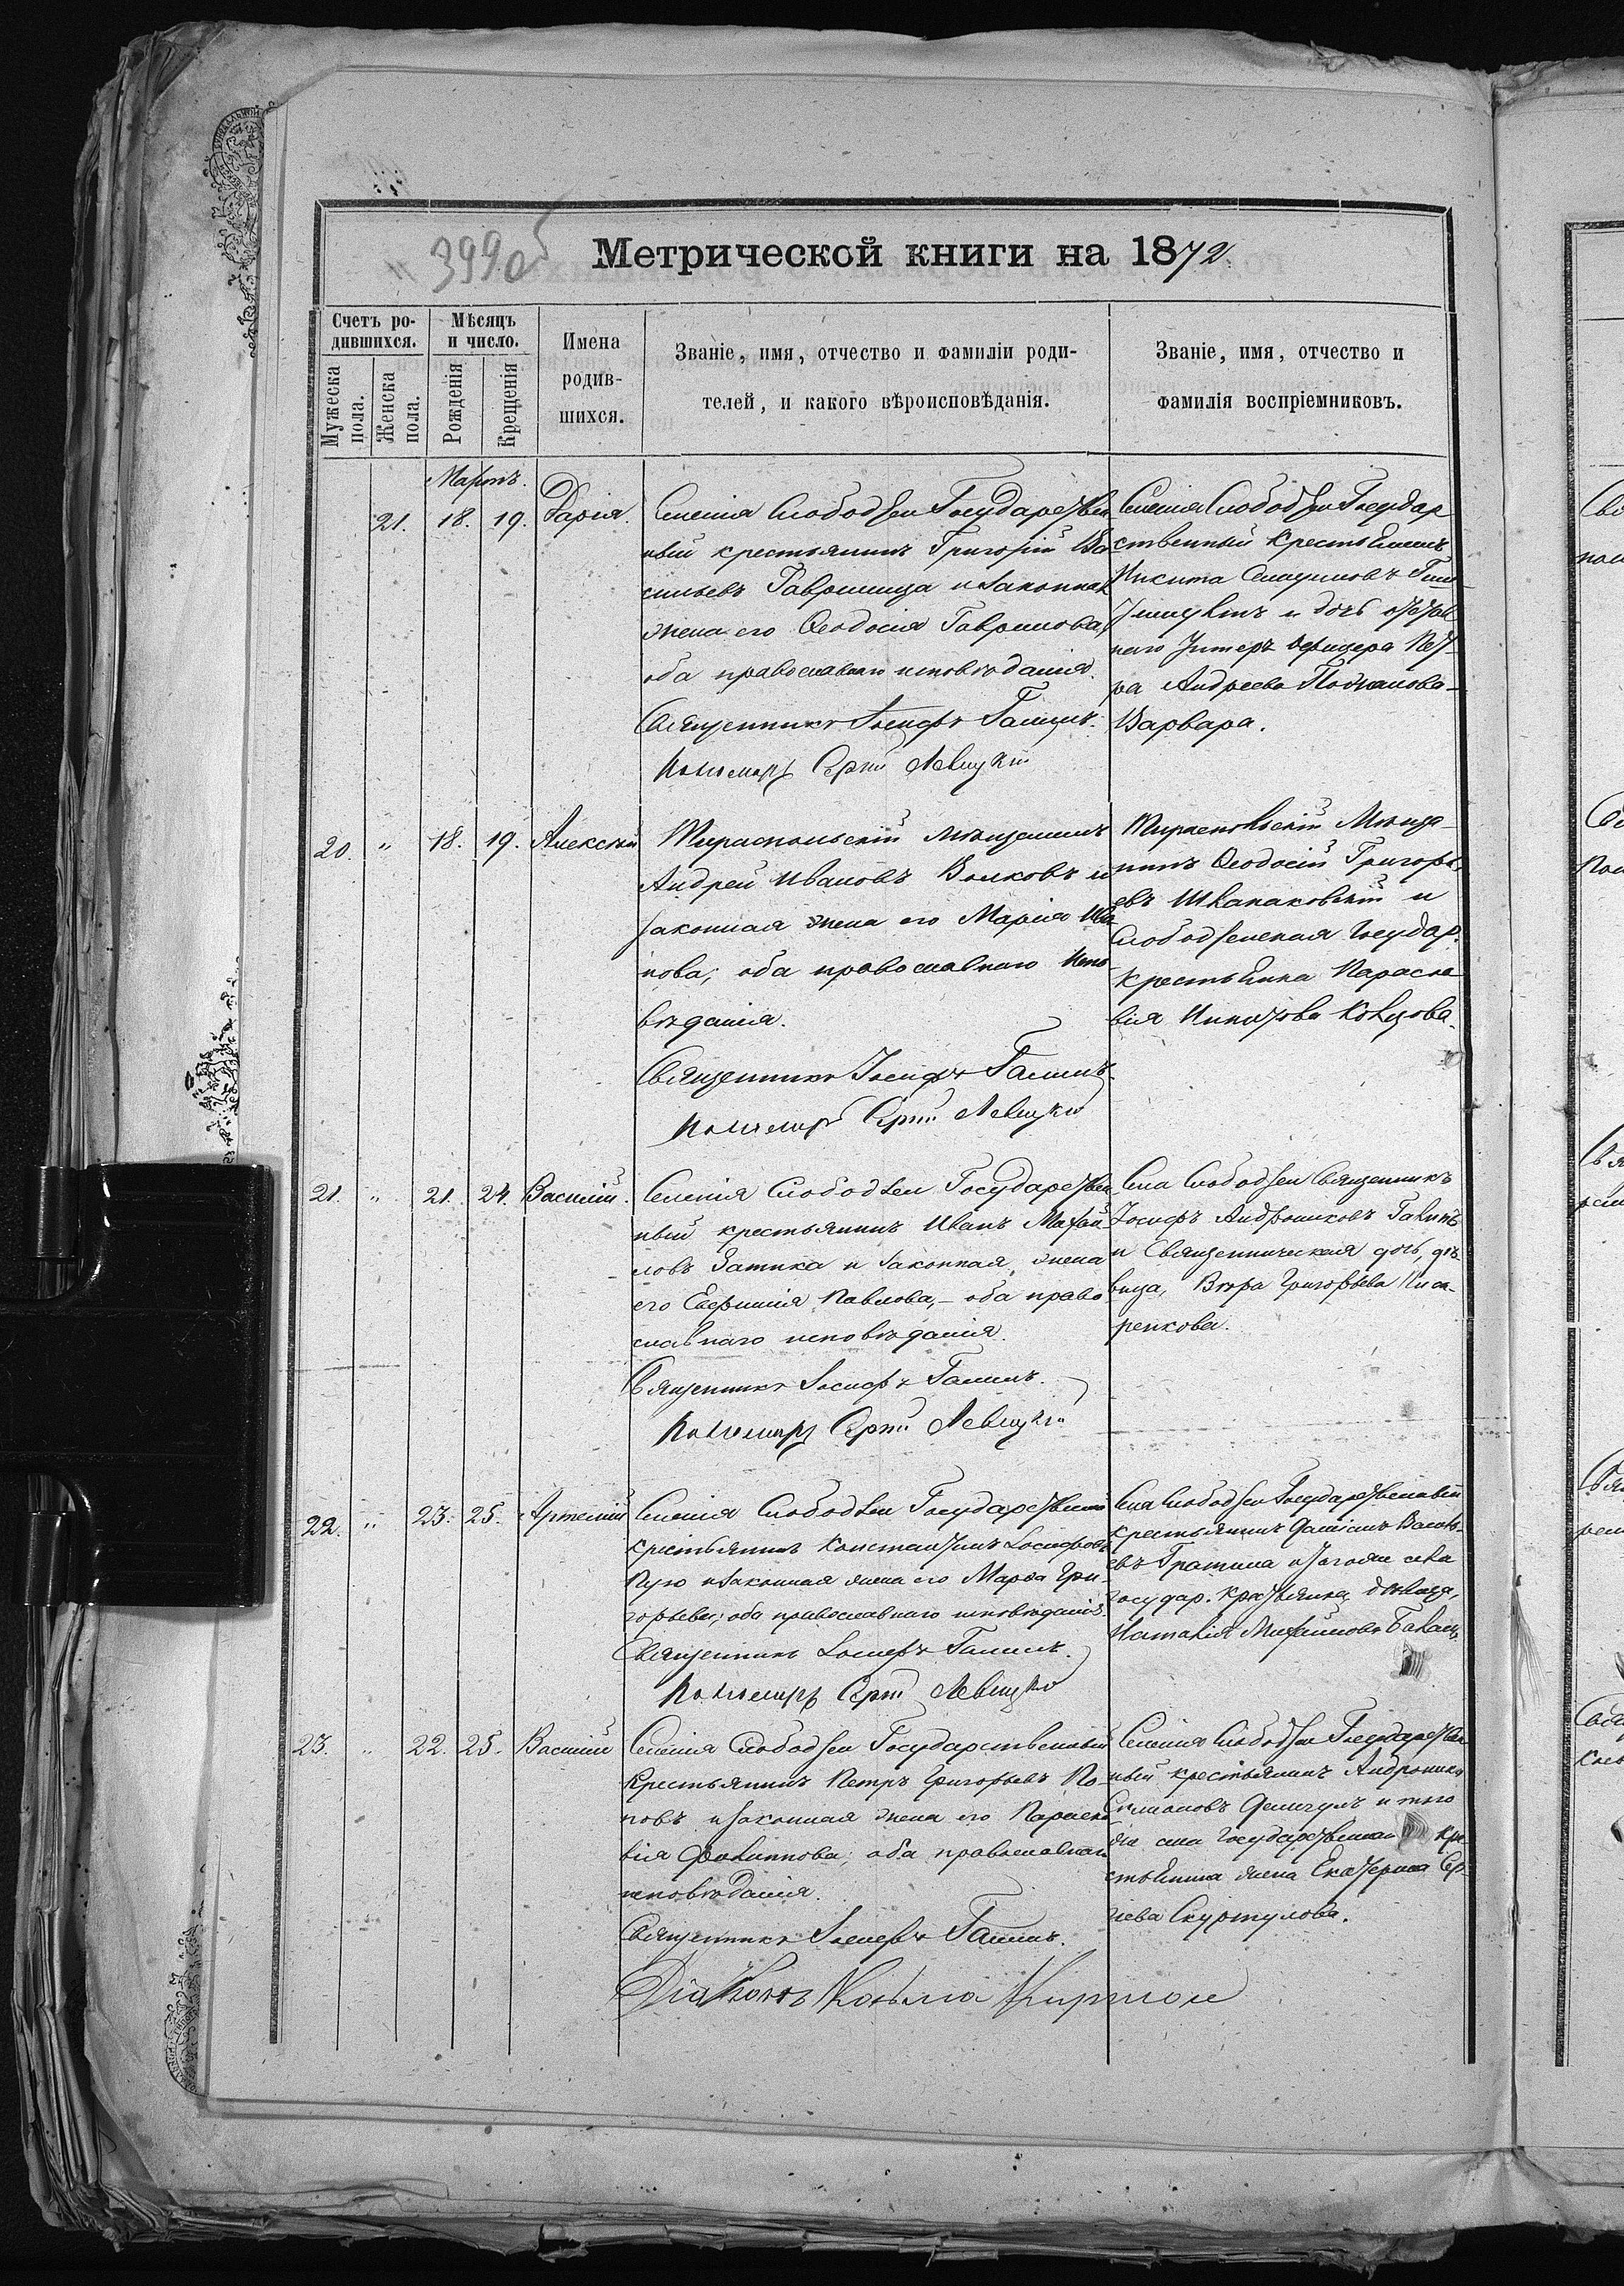 399 об
Метрической книги на 1872
Счетъ ро-
дившихся.
Мужеска
пола.
Женска
пола.
Мѣсяцъ
и число.
Рожденія
Крещенія
Имена
родив-
шихся.
Званіе, имя, отчество и фамиліи роди-
телей, и какого вѣроисповѣданія.
Званіе, имя, отчество и
фамилія воспріемниковъ.
Мартъ.
21. 18. 19. Дарія.
Селенія Слободзеи Государствен
ный крестьянинъ Григорій Ва
сильевъ Гаврилица и законная
жена его Ѳеодосія Гаврилова,
оба православнаго исповѣданія.
Священникъ Іосифъ Галинъ.
Пономарь Сергій Левицкій
Селенія Слободзеи Государ
ственный крестьянинъ
Никита
и дочь отстав
наго Унтеръ офицера Пет-
ра Андреева
Варвара.
20. " 18. 19. Алексѣй
Тираспольскій мѣщанинъ
Андрей Ивановъ Волковъ и
законная жена его Марія Ива
нова; оба православнаго испо
вѣданія.
Священникъ Іосифъ Галинъ.
Пономарь Сергій Левицкій
Тираспольскій Мѣща-
нинъ Ѳеодосій Григорь
евъ и
Слободзейская Государ.
крестьянка Параске
вія
21. " 21. 24. Василій.
Селенія Слободзеи Государствен
ный крестьянинъ Иванъ Михай
ловъ Затика и законная жена
его Евфимія Павлова, - оба право
славнаго исповѣданія.
Священникъ Іосифъ Галинъ.
Пономарь Сергій Левицкій
Села Слободзеи Священникъ
Іосифъ Андрониковъ Галинъ
и Священническая дочь, дѣ
вица, Вѣра Григорьева Писа-
ренкова.
22. " 23. 25. Артемій
Селенія Слободзеи Государственный
крестьянинъ Константинъ Іосифовъ
и законная жена его Марѳа Гри-
горьева; оба православнаго исповѣданія.
Священникъ Іосифъ Галинъ.
Пономарь Сергій Левицкій
Села Слободзеи Государственный
крестьянинъ Василь-
евъ и тогоже села
государ. крестьянка дѣвица,
Наталія Михайлова
23. " 22. 25. Василій
Селенія Слободзеи Государственный
Крестьянинъ Петръ Григорьевъ По-
повъ и законная жена его Параске
вія Филиппова; оба православнаго
исповѣданія.
Священникъ Іосифъ Галинъ.
Діаконъ Козьма
Селенія Слободзеи Государствен
ный крестьянинъ Андроникъ
Симіоновъ и того
же села Государственнаго кре-
стьянина жена Екатерина Сер-
гіева Скуртулова.